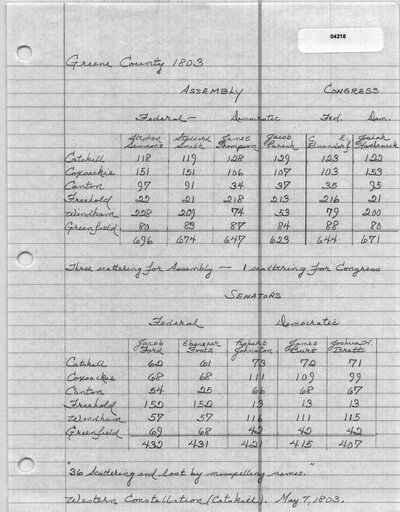 04218
Greene County 1803
ASSEMBLY CONGRESS
Federal — Democratic Fed. Dem.
Stephen Simmons Stoddard Smith James Thompson Jacob Parish C. E. Elmendorf Josiah Hasbrouck
Catskill 118 119 128 129 123 122
Coxsackie 151 151 106 107 103 153
Canton 97 91 34 37 35 95
Freehold 22 21 218 213 216 21
Windham 228 209 74 53 79 200
Greenfield 80 83 87 84 88 80
696 674 647 623 644 671
Three scattering for Assembly — 1 scattering for Congress
SENATORS
Federal Democratic
Jacob Ford Ebenezer Foote Robert Johnston James Burt Joshua H. Brett
Catskill 62 61 73 72 71
Coxsackie 68 68 111 109 99
Canton 24 25 66 68 67
Freehold 152 152 13 13 13
Windham 57 57 116 111 115
Greenfield 69 68 42 42 42
432 431 421 415 407
"36 Scattering and lost by misspelling names."
Western Constellation (Catskill). May 7, 1803.